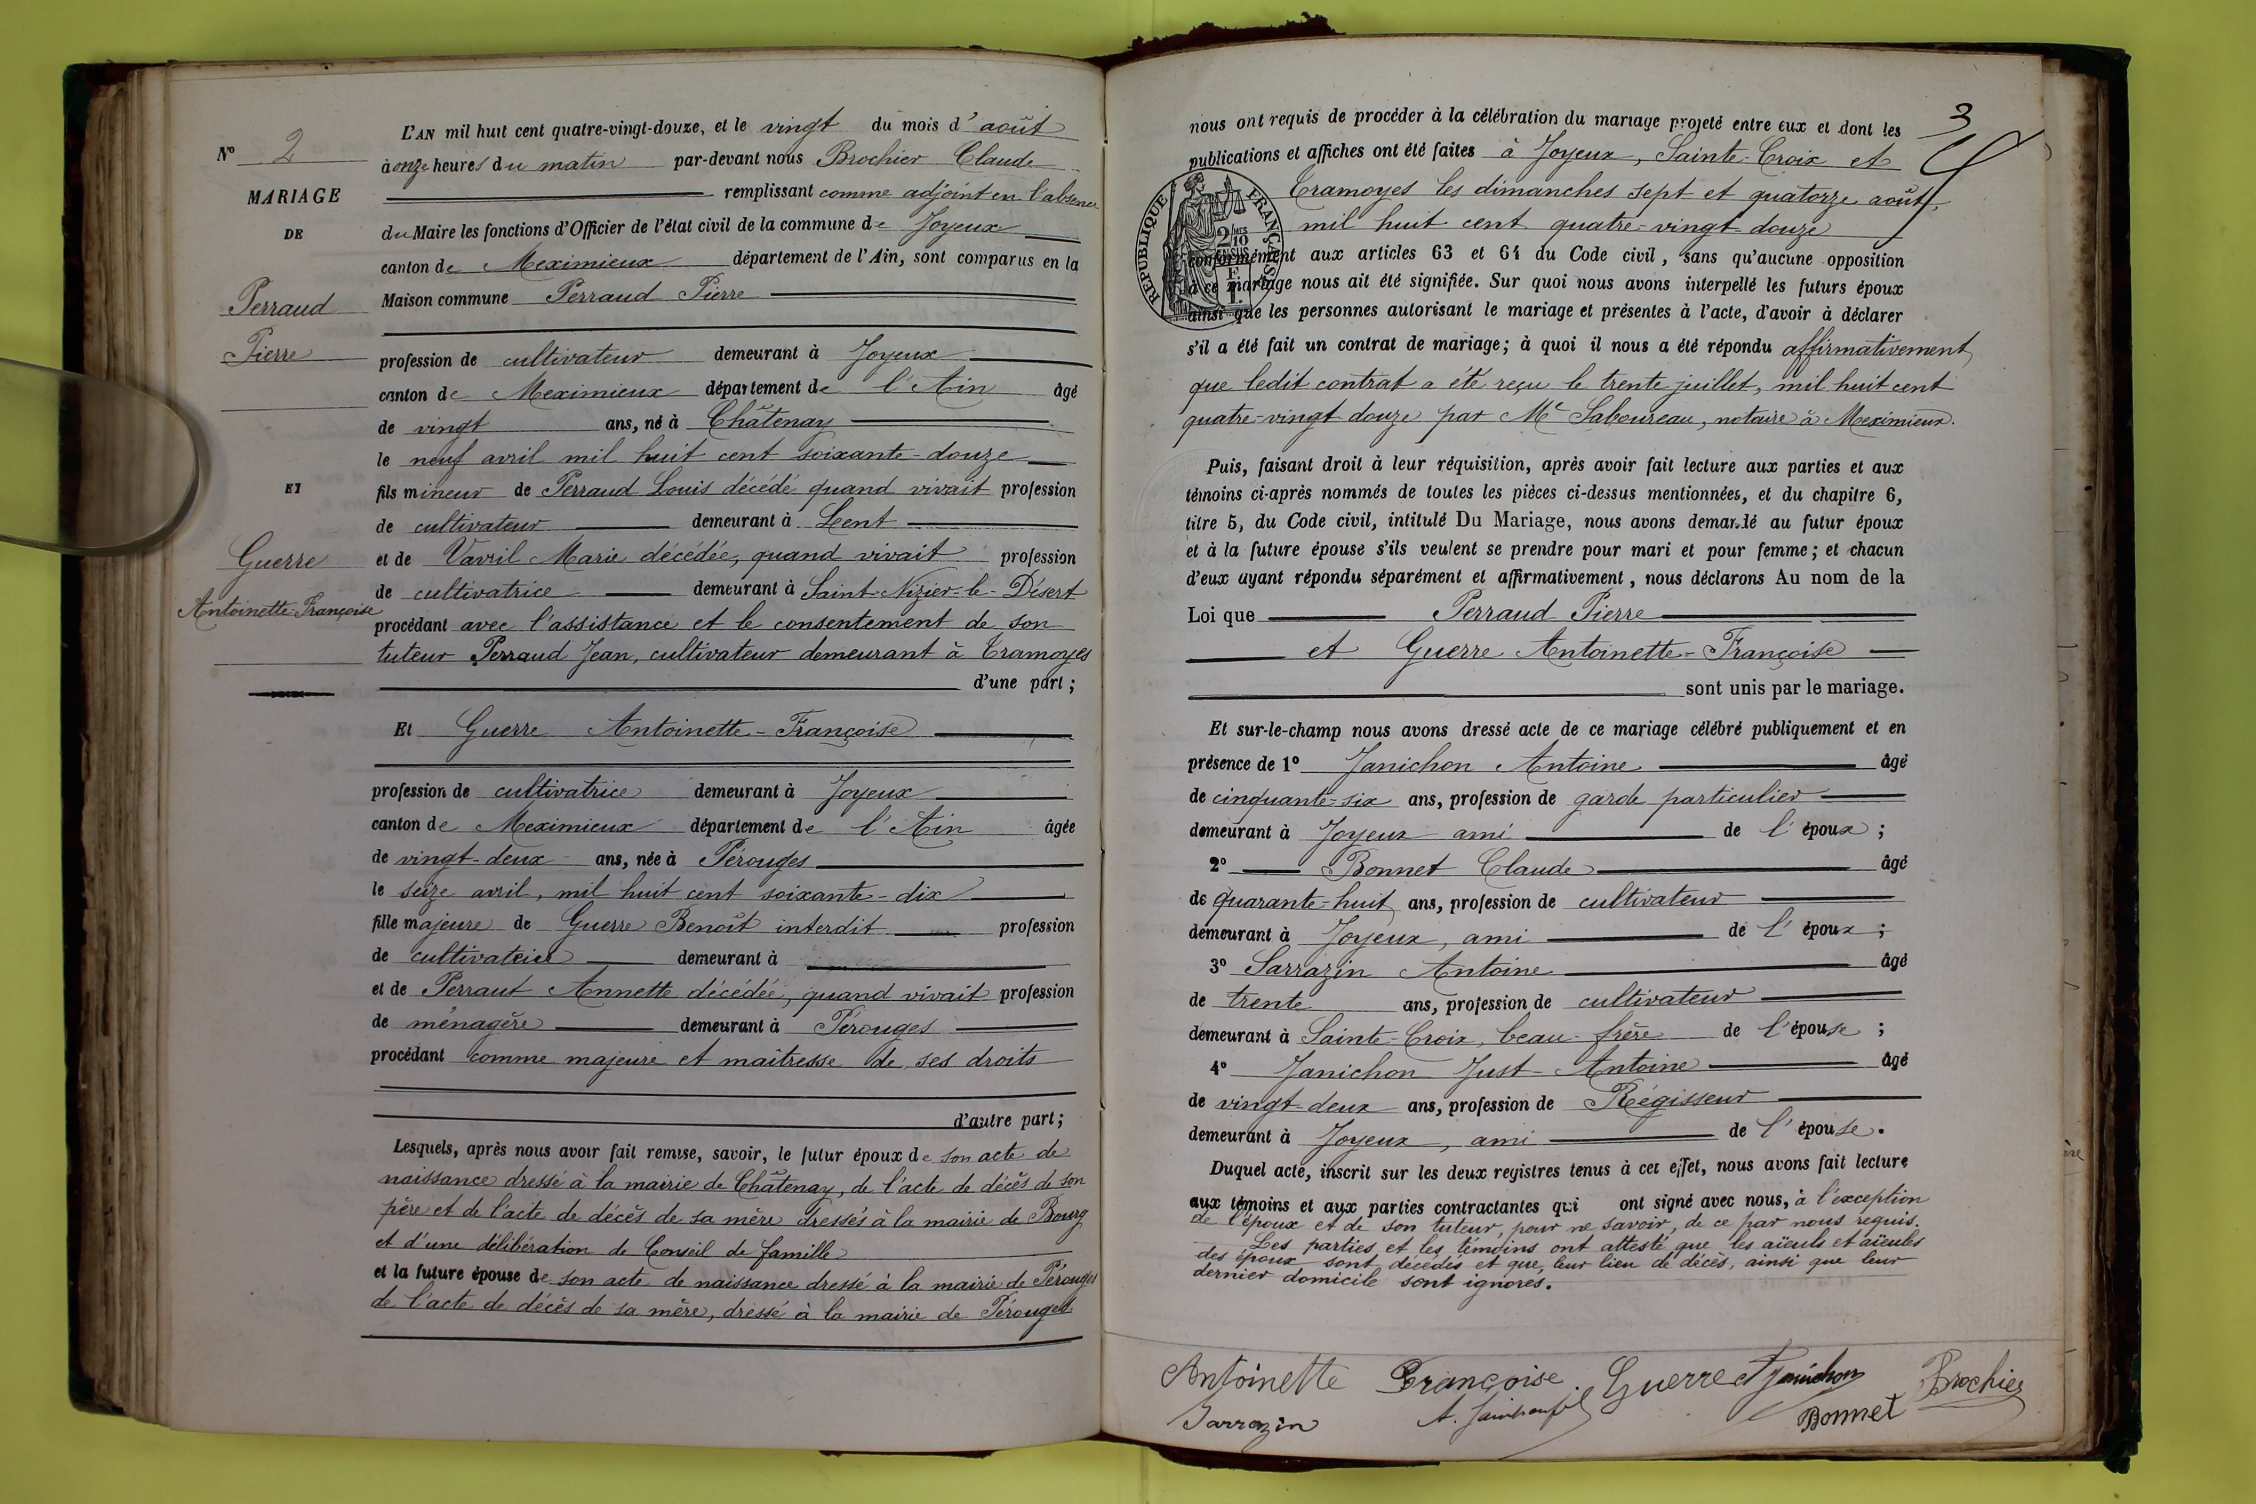 N° 2
MARIAGE
DE
Perraud
Pierre
ET
Guerre
Antoinette-Françoise
L'AN mil huit cent quatre-vingt-douze, et le vingt du mois d'août
à onze heures du matin par-devant nous Brochier Claude
remplissant comme adjoint en l'absence
du Maire les fonctions d'Officier de l'état civil de la commune de Joyeux
canton de Meximieux département de l'Ain, sont comparus en la
Maison commune Perraud Pierre
profession de cultivateur demeurant à Joyeux
canton de Meximieux département de l'Ain âgé
de vingt ans, né à Châtenay
le neuf avril mil huit cent soixante-douze
fils mineur de Perraud Louis décédé quand vivait profession
de cultivateur demeurant à Lent
et de Vavril Marie décédée, quand vivait profession
de cultivatrice demeurant à Saint-Nizier-le-Désert
procédant avec l'assistance et le consentement de son
tuteur Perraud Jean, cultivateur demeurant à Tramoyes
d'une part ;
Et Guerre Antoinette-Françoise
profession de cultivatrice demeurant à Joyeux
canton de Meximieux département de l'Ain âgée
de vingt-deux ans, née à Pérouges
le seize avril, mil huit cent soixante-dix
fille majeure de Guerre Benoît interdit profession
de demeurant à
et de Perraut Annette décédée, quand vivait profession
de ménagère demeurant à Pérouges
procédant comme majeure et maîtresse de ses droits
d'autre part ;
Lesquels, après nous avoir fait remise, savoir, le futur époux de son acte de
naissance dressé à la mairie de Châtenay, de l'acte de décès de son
père et de l'acte de décès de sa mère dressés à la mairie de Bourg
et d'une délibération de Conseil de famille
et la future épouse de son acte de naissance dressé à la mairie de Pérouges
de l'acte de décès de sa mère, dressé à la mairie de Pérouges
3
nous ont requis de procéder à la célébration du mariage projeté entre eux et dont les
publications et affiches ont été faites à Joyeux, Sainte-Croix et
Tramoyes les dimanches sept et quatorze août,
mil huit cent quatre-vingt-douze
RÉPUBLIQUE FRANÇAISE
2/10
EN SUS
conformément aux articles 63 et 64 du Code civil, sans qu'aucune opposition
à ce mariage nous ait été signifiée. Sur quoi nous avons interpellé les futurs époux
ainsi que les personnes autorisant le mariage et présentes à l'acte, d'avoir à déclarer
s'il a été fait un contrat de mariage ; à quoi il nous a été répondu affirmativement
que ledit contrat a été reçu le trente juillet, mil huit cent
quatre-vingt douze par Me Saboureau, notaire à Meximieux.
Puis, faisant droit à leur réquisition, après avoir fait lecture aux parties et aux
témoins ci-après nommés de toutes les pièces ci-dessus mentionnées, et du chapitre 6,
titre 5, du Code civil, intitulé Du Mariage, nous avons demandé au futur époux
et à la future épouse s'ils veulent se prendre pour mari et pour femme ; et chacun
d'eux ayant répondu séparément et affirmativement, nous déclarons Au nom de la
Loi que Perraud Pierre
et Guerre Antoinette-Françoise
sont unis par le mariage.
Et sur-le-champ nous avons dressé acte de ce mariage célébré publiquement et en
présence de 1° Janichon Antoine âgé
de cinquante-six ans, profession de garde particulier
demeurant à Joyeux ami de l'époux ;
2° Bonnet Claude âgé
de quarante-huit ans, profession de cultivateur
demeurant à Joyeux, ami de l'époux ;
3° Sarrazin Antoine âgé
de trente ans, profession de cultivateur
demeurant à Sainte-Croix, beau-frère de l'épouse ;
4° Janichon Just-Antoine âgé
de vingt-deux ans, profession de Régisseur
demeurant à Joyeux, ami de l'épouse.
Duquel acte, inscrit sur les deux registres tenus à cet effet, nous avons fait lecture
aux témoins et aux parties contractantes qui ont signé avec nous, à l'exception
de l'époux et de son tuteur, pour ne savoir, de ce par nous requis.
Les parties et les témoins ont attesté que les aïeuls et aïeules
des époux sont décédés et que leur lieu de décès, ainsi que leur
dernier domicile sont ignorés.
Antoinette Françoise Guerre Janichon Brochier
Sarrazin A. Bonnet